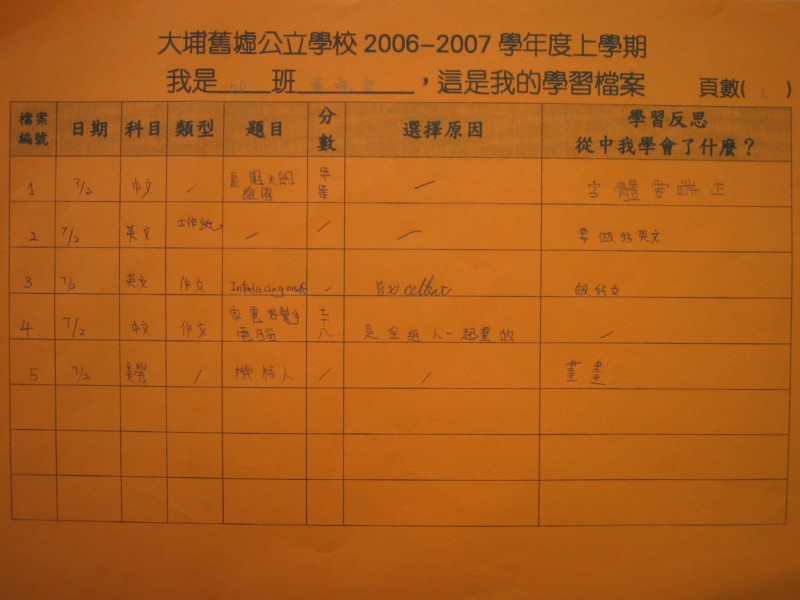 大埔舊墟公立學校 2006-2007 學年度上學期
我是 班 ，這是我的學習檔案 頁數( 1 )
檔案編號 日期 科目 類型 題目 分數 選擇原因 學習反思 從中我學會了什麼？
1 7/2 中文 / 星期天的 / 字體要端正
2 7/2 英文 工作紙 / / / 要做好英文
3 7/2 英文 作文 / Excellent 做好文
4 7/2 中文 作文 家電好幫手 電腦 六十八 是全組人一起畫的 /
5 7/2 美勞 / 機械人 / / 畫畫